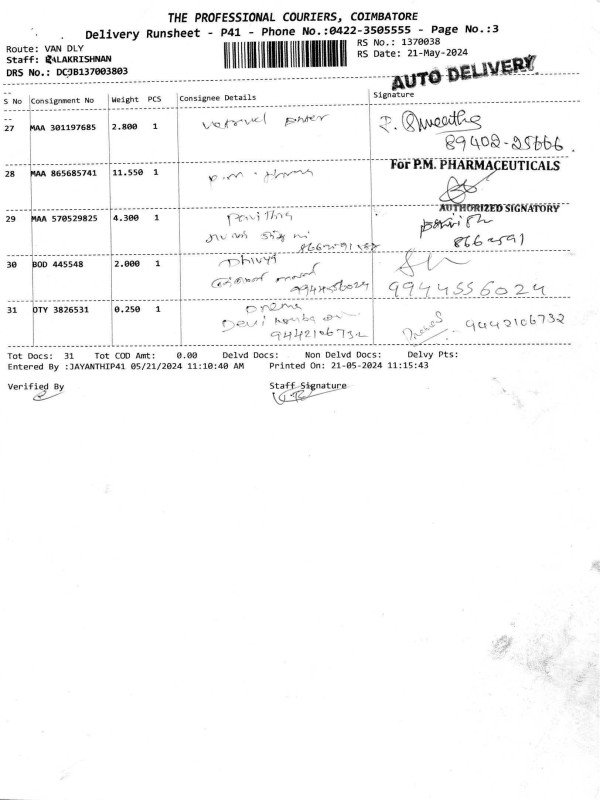 THE PROFESSIONAL COURIERS, COIMBATORE
Delivery Runsheet - P41 - Phone No.:0422-3505555 - Page No.:3
Route: VAN DLY
RS No.: 1370038
Staff: BALAKRISHNAN
RS Date: 21-May-2024
DRS No.: DCJB137003803
AUTO DELIVERY
S No Consignment No Weight PCS Consignee Details Signature
27 MAA 301197685 2.800 1
89402-25666.
28 MAA 865685741 11.550 1 P.M.
For P.M. PHARMACEUTICALS
AUTHORIZED SIGNATORY
29 MAA 570529825 4.300 1 Pavithra
8662591
30 BOD 445548 2.000 1 Dhivya
9944556024 9944556024
31 OTY 3826531 0.250 1
Devi
9442106732 9442106732
Tot Docs: 31 Tot COD Amt: 0.00 Delvd Docs: Non Delvd Docs: Delvy Pts:
Entered By :JAYANTHIP41 05/21/2024 11:10:40 AM Printed On: 21-05-2024 11:15:43
Verified By Staff Signature